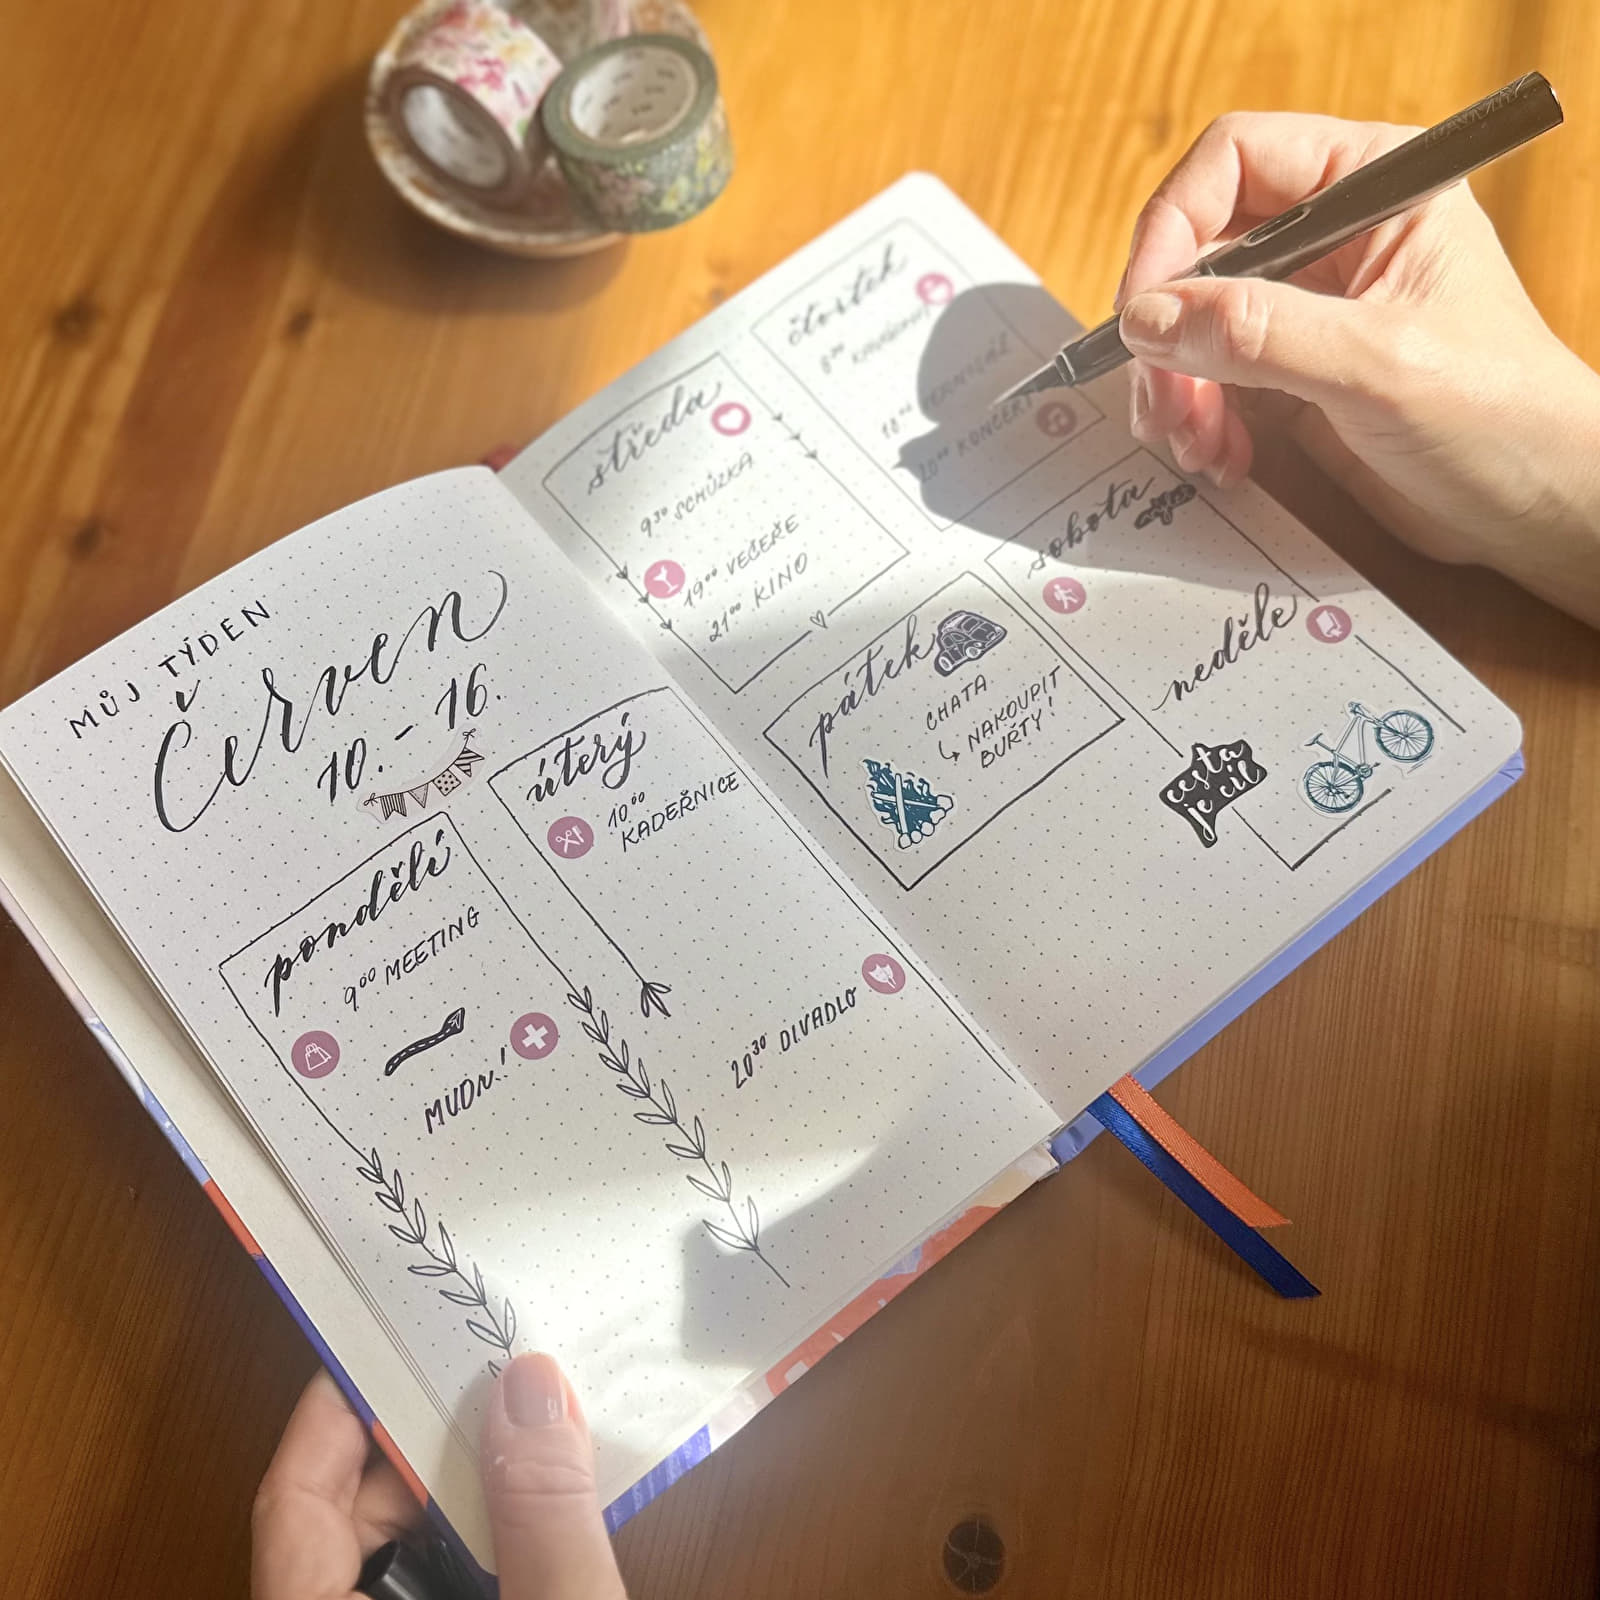 MŮJ TÝDEN
Červen
10. - 16.
pondělí
9⁰⁰ MEETING
MUDr!
úterý
10⁰⁰
KADEŘNICE
20³⁰ DIVADLO
středa
9³⁰ SCHŮZKA
19⁰⁰ VEČEŘE
21⁰⁰ KINO
čtvrtek
20⁰⁰ KONCERT
pátek
CHATA
↳ NAKOUPIT
BUŘTY!
sobota
neděle
cesta
je cíl